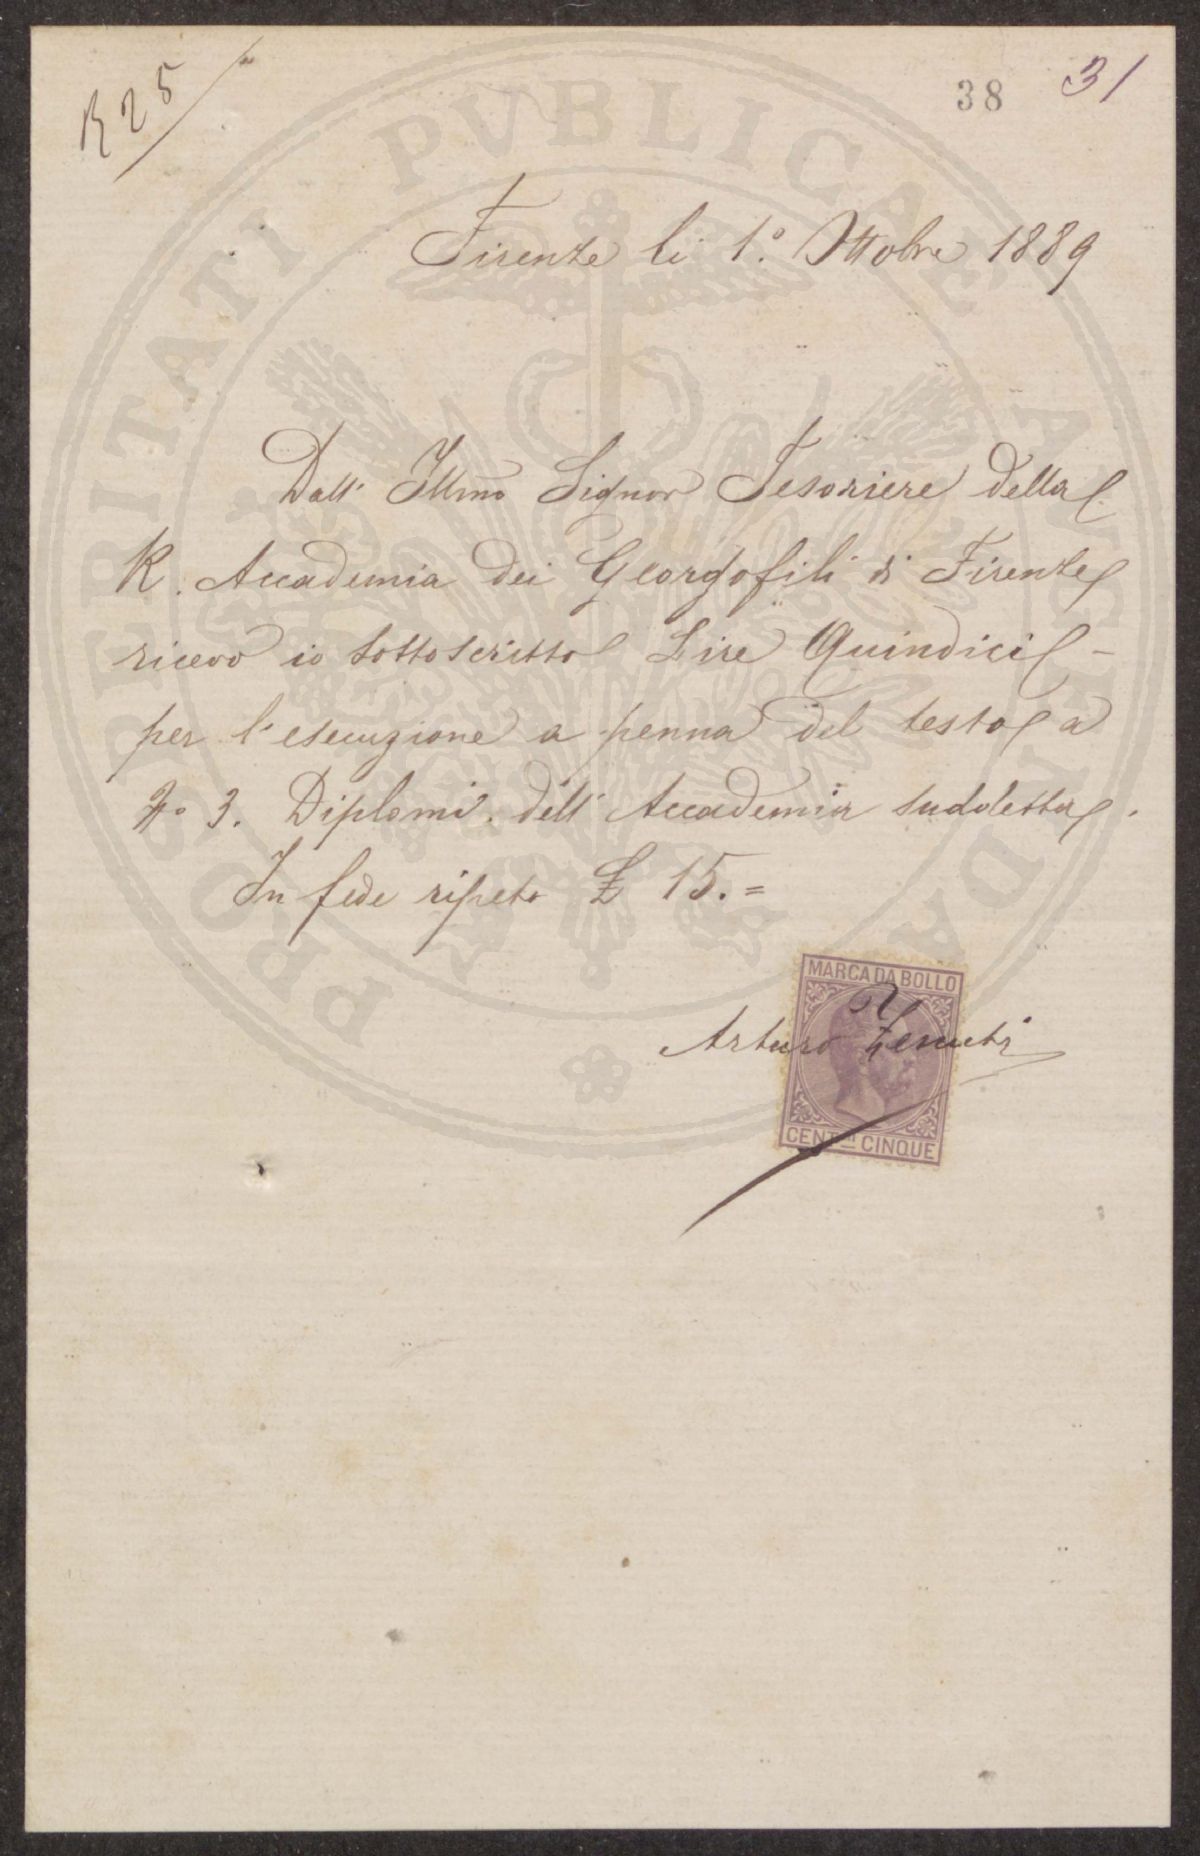 R 25
38 31
Firenze li 1º. Ottobre 1889
Dall' Illmo Signor Tesoriere della
R. Accademia dei Georgofili di Firenze
ricevo io sottoscritto Lire Quindici –
per l'esecuzione a penna del testo a
Nº 3. Diplomi dell' Accademia suddetta.
In fede ripeto £ 15.=
MARCA DA BOLLO
Arturo
CENT.MI CINQUE
PROSPERITATI PUBLICAE AUGENDAE